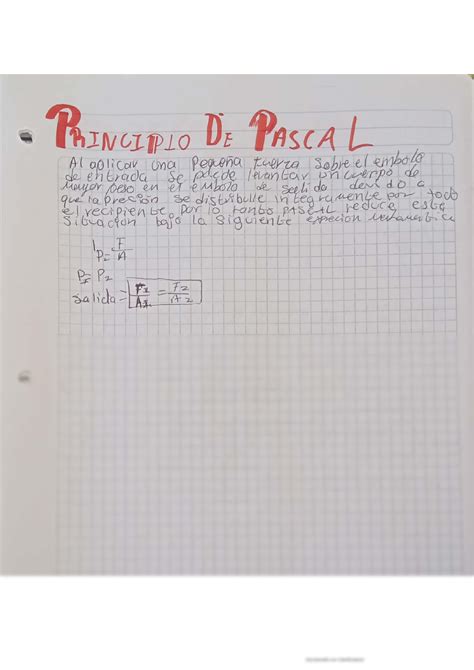 PRINCIPIO DE PASCAL
Al aplicar una pequeña fuerza sobre el embolo
de entrada se puede levantar un cuerpo de
mayor peso en el embolo de salida devido a
que la presión se distribulle integramente por todo
el recipiente. Por lo tanto PASCAL reduce esta
situacion bajo la siguiente
P= F/A
P1= P2
salida = F1/A1 = F2/A2